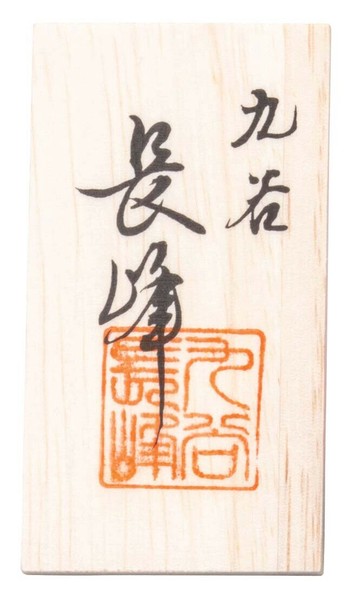 九谷
長峰
九谷
長峰